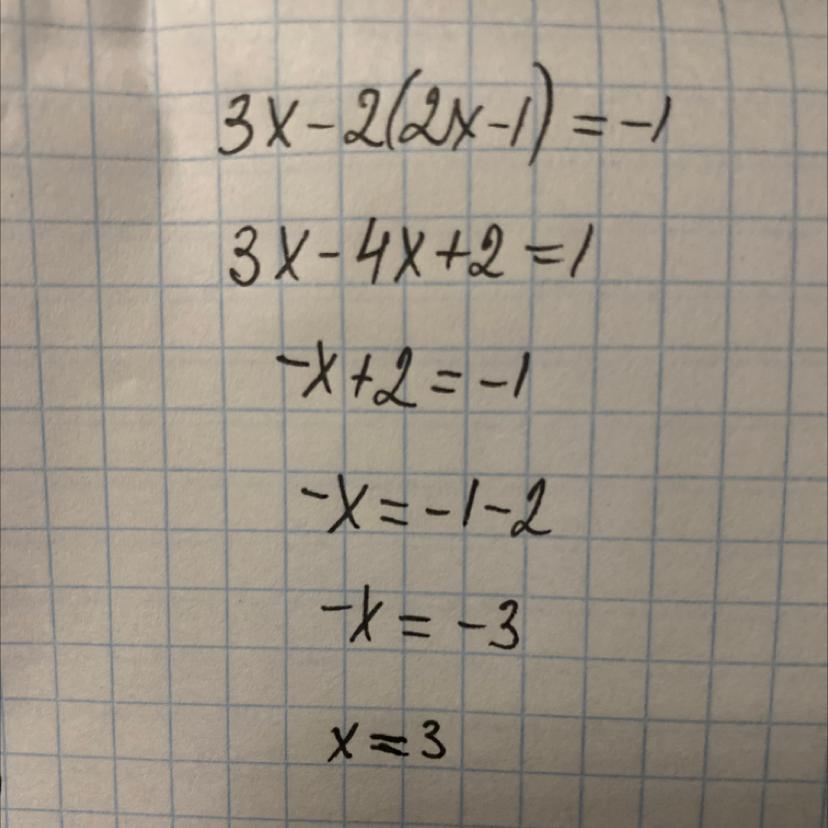 3x-2(2x-1)=-1
3x-4x+2=1
-x+2=-1
-x=-1-2
-x=-3
x=3